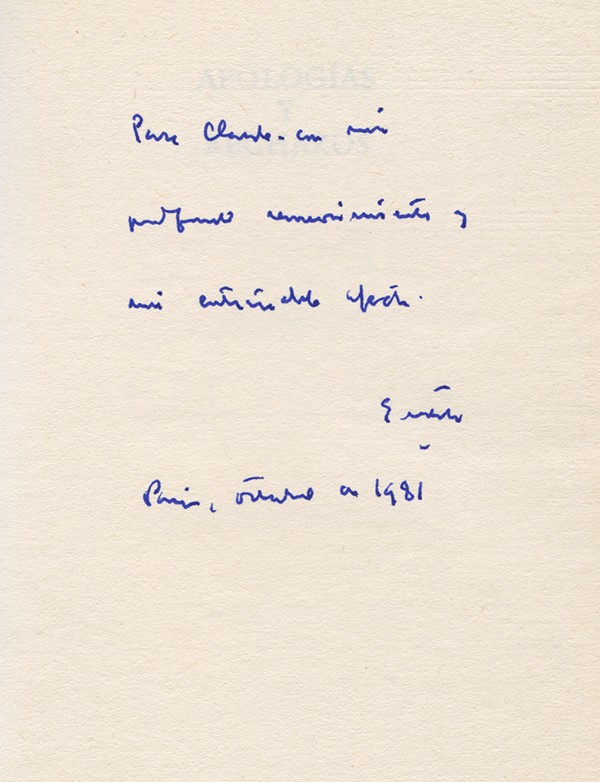 APOLOGÍAS
Y
RECHAZOS
Para Claude - con mi
profundo reconocimiento y
mi entrañable afecto.
Ernesto
Paris, octubre de 1981